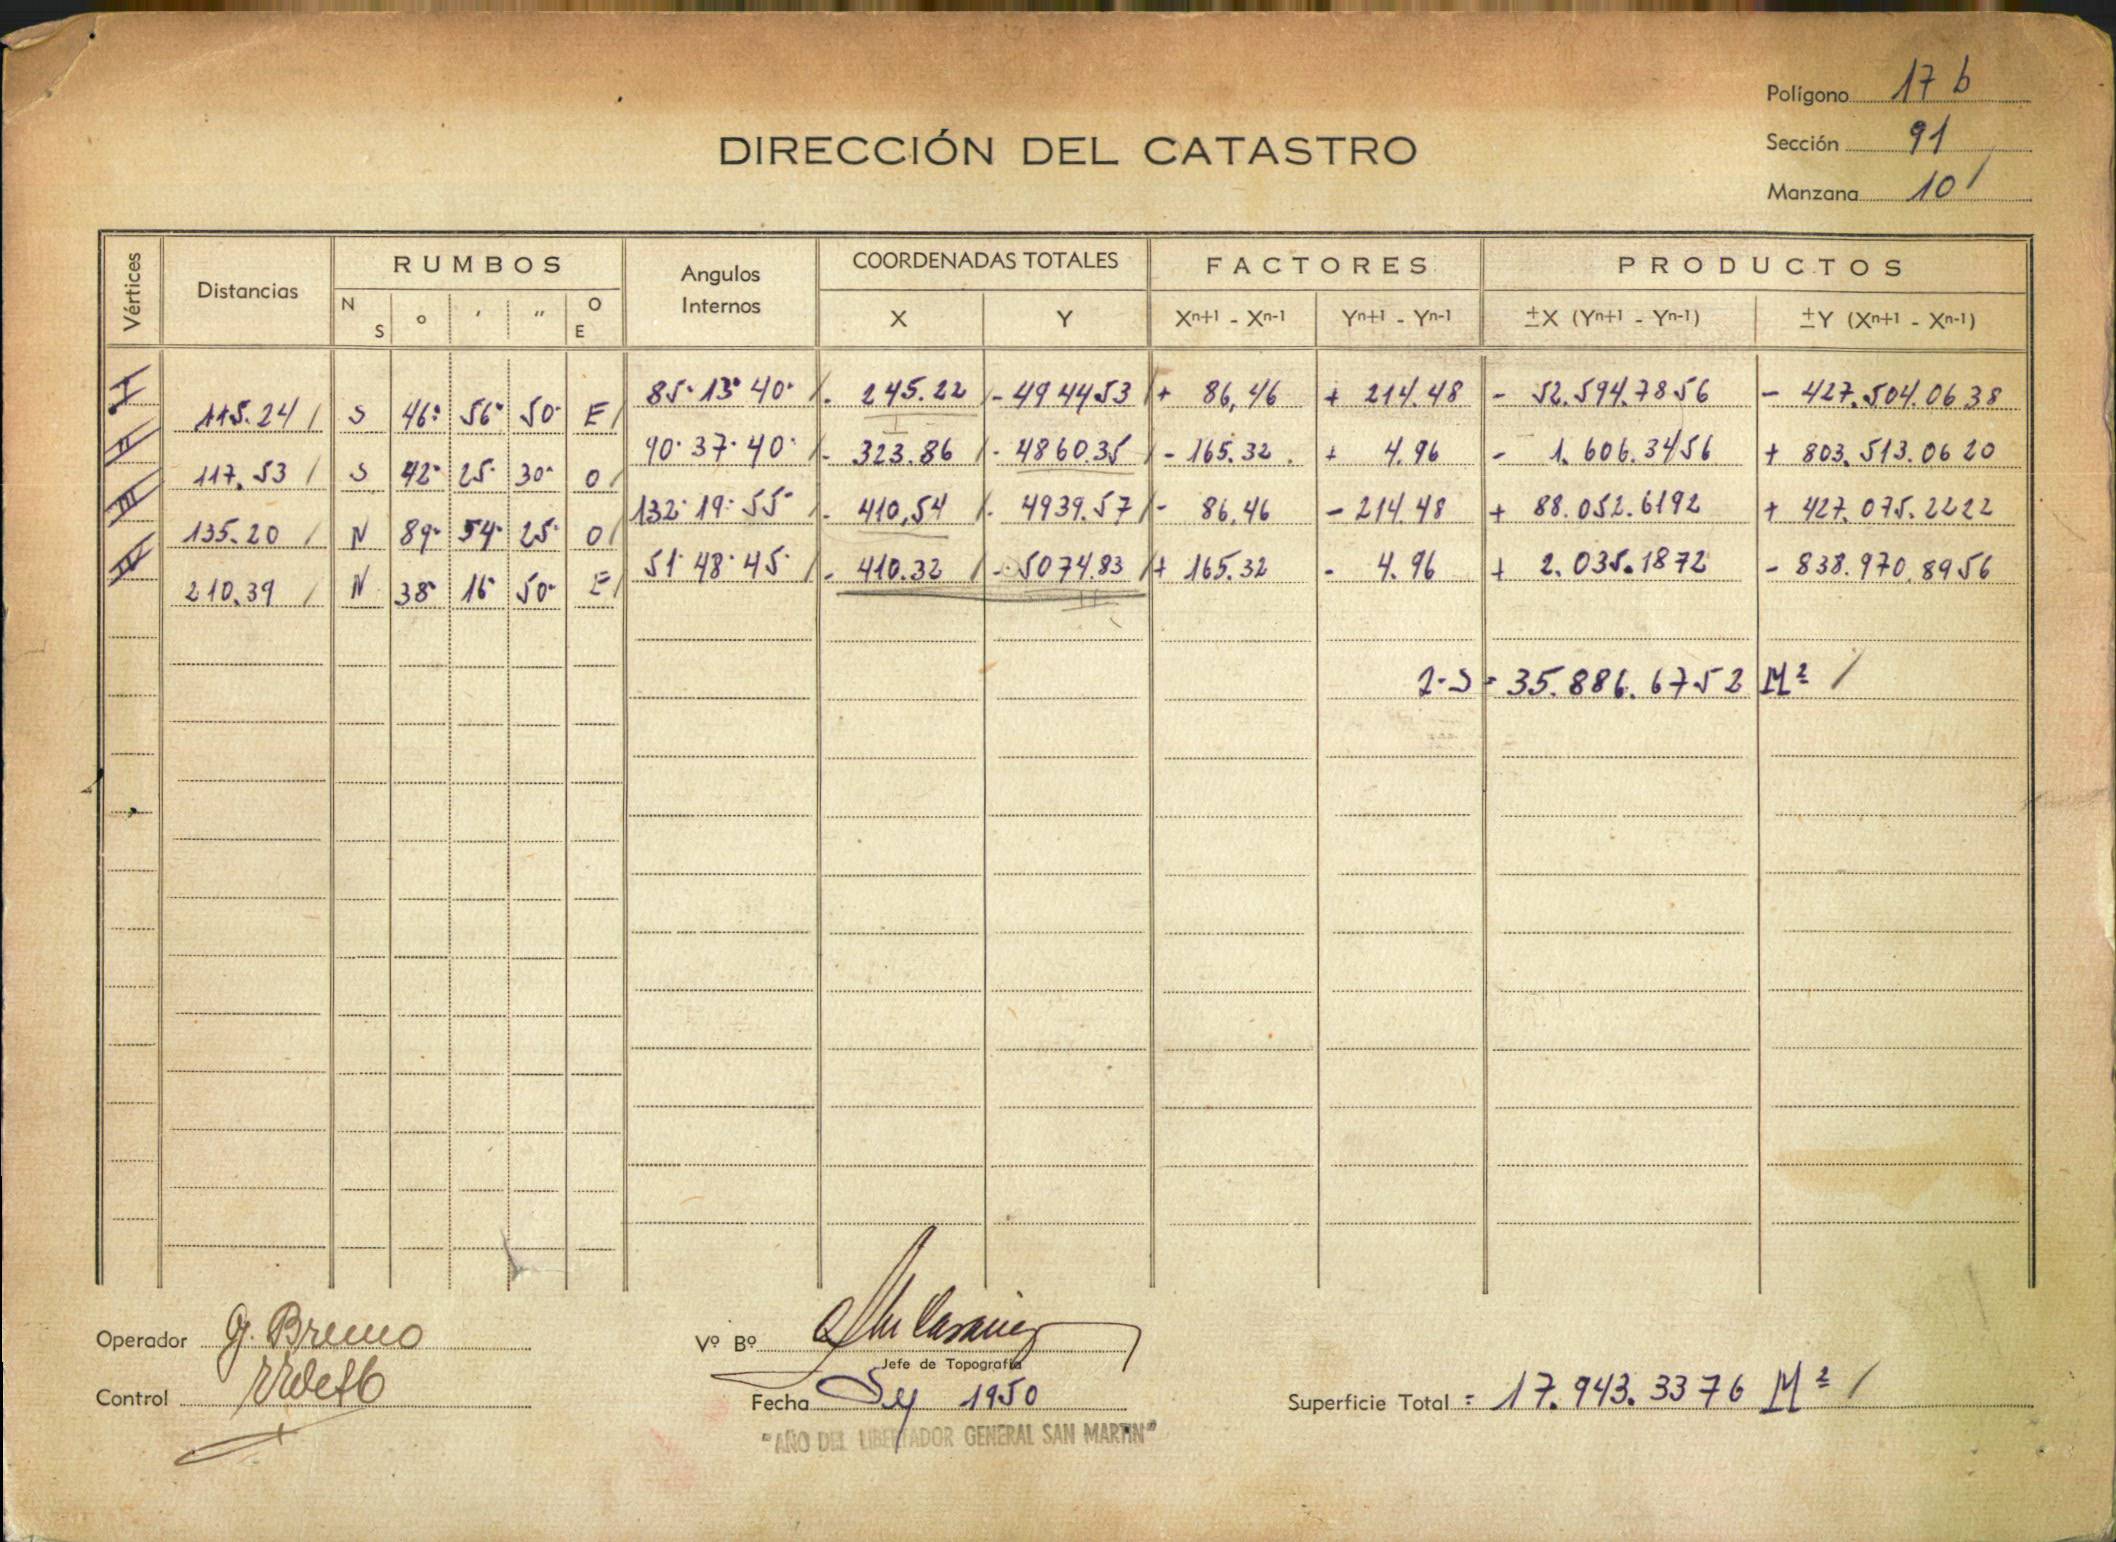 Polígono 17 b
DIRECCIÓN DEL CATASTRO
Sección 91
Manzana 10
Vértices Distancias RUMBOS Angulos Internos COORDENADAS TOTALES FACTORES PRODUCTOS
N S ° ' " O E X Y Xn+1 - Xn-1 Yn+1 - Yn-1 ±X (Yn+1 - Yn-1) ±Y (Xn+1 - Xn-1)
I 85° 13' 40" - 245.22 - 4944.53 + 86,46 + 214.48 - 52.594.7856 - 427.504.0638
115.24 S 46° 56' 50" E
II 90° 37' 40" - 323.86 - 4860.35 - 165.32 + 4.96 - 1.606.3456 + 803.513.0620
117.53 S 42° 25' 30" O
III 132° 19' 55" - 410,54 - 4939.57 - 86,46 - 214.48 + 88.052.6192 + 427.075.2222
135.20 N 89° 54' 25" O
IV 51° 48' 45" - 410.32 - 5074.83 + 165.32 - 4.96 + 2.035.1872 - 838.970.8956
210.39 N 38° 16' 50" E
2·S = 35.886.6752 M²
Operador G. Bruno
Vº Bº
Jefe de Topografía
Control
Fecha 1950
Superficie Total = 17.943.3376 M²
"AÑO DEL LIBERTADOR GENERAL SAN MARTIN"